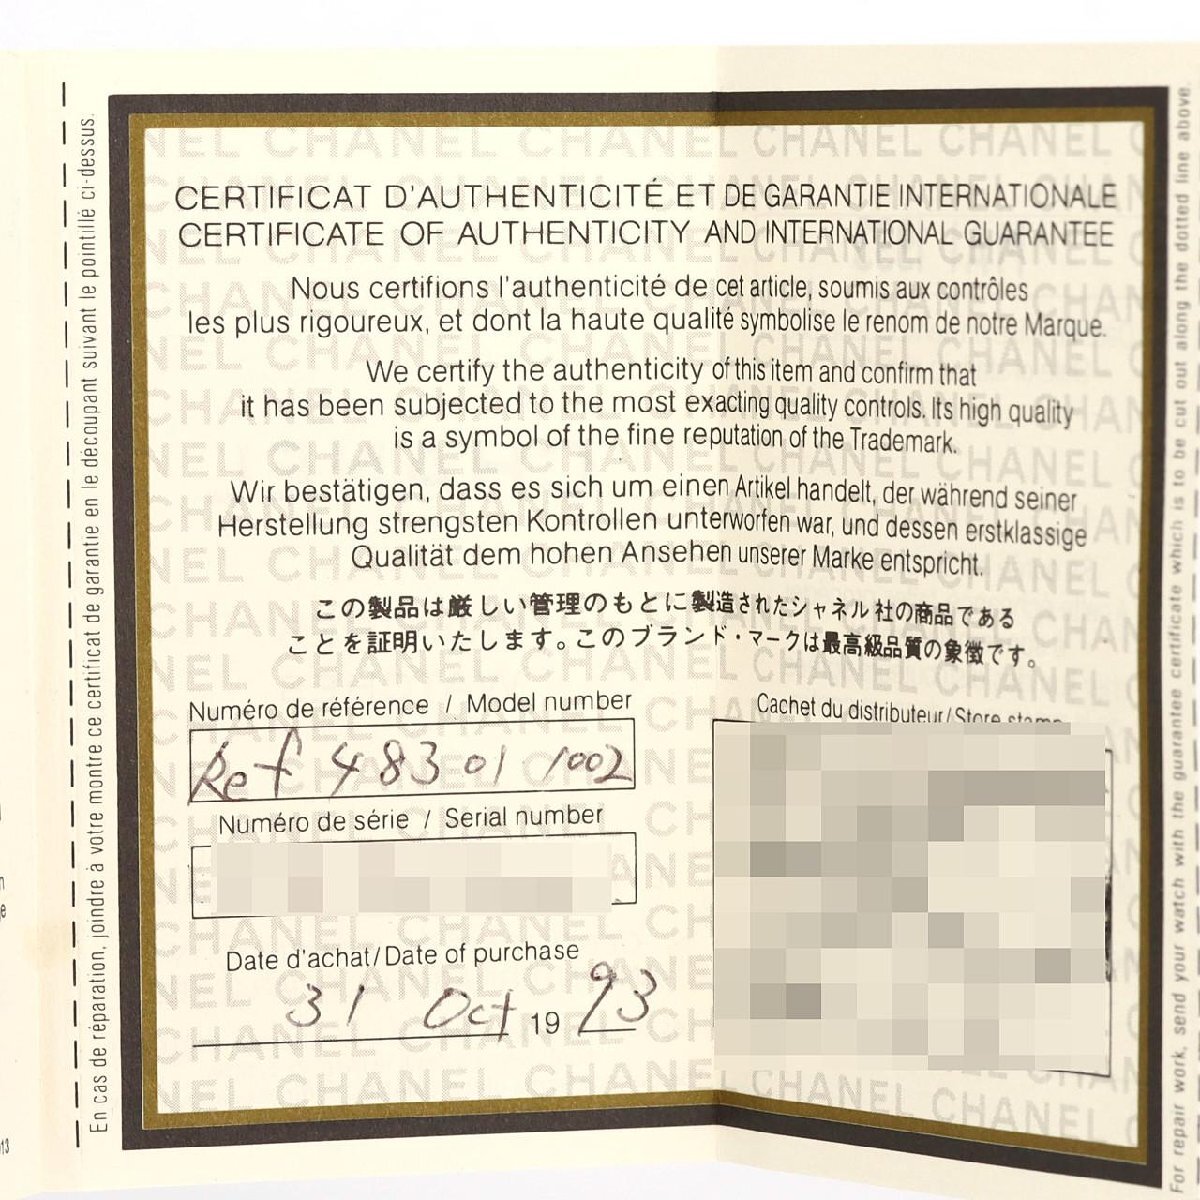 CERTIFICAT D'AUTHENTICITÉ ET DE GARANTIE INTERNATIONALE
CERTIFICATE OF AUTHENTICITY AND INTERNATIONAL GUARANTEE
Nous certifions l'authenticité de cet article, soumis aux contrôles
les plus rigoureux, et dont la haute qualité symbolise le renom de notre Marque.
We certify the authenticity of this item and confirm that
it has been subjected to the most exacting quality controls. Its high quality
is a symbol of the fine reputation of the Trademark.
Wir bestätigen, dass es sich um einen Artikel handelt, der während seiner
Herstellung strengsten Kontrollen unterworfen war, und dessen erstklassige
Qualität dem hohen Ansehen unserer Marke entspricht.
この製品は厳しい管理のもとに製造されたシャネル社の商品である
ことを証明いたします。このブランド・マークは最高級品質の象徴です。
Numéro de référence / Model number
Ref 48301 1002
Numéro de série / Serial number
Date d'achat/Date of purchase
31 Oct 1993
Cachet du distributeur/Store stamp
En cas de réparation, joindre à votre montre ce certificat de garantie en le découpant suivant le pointillé ci-dessus.
For repair work, send your watch with the guarantee certificate which is to be cut out along the dotted line above.
CHANEL